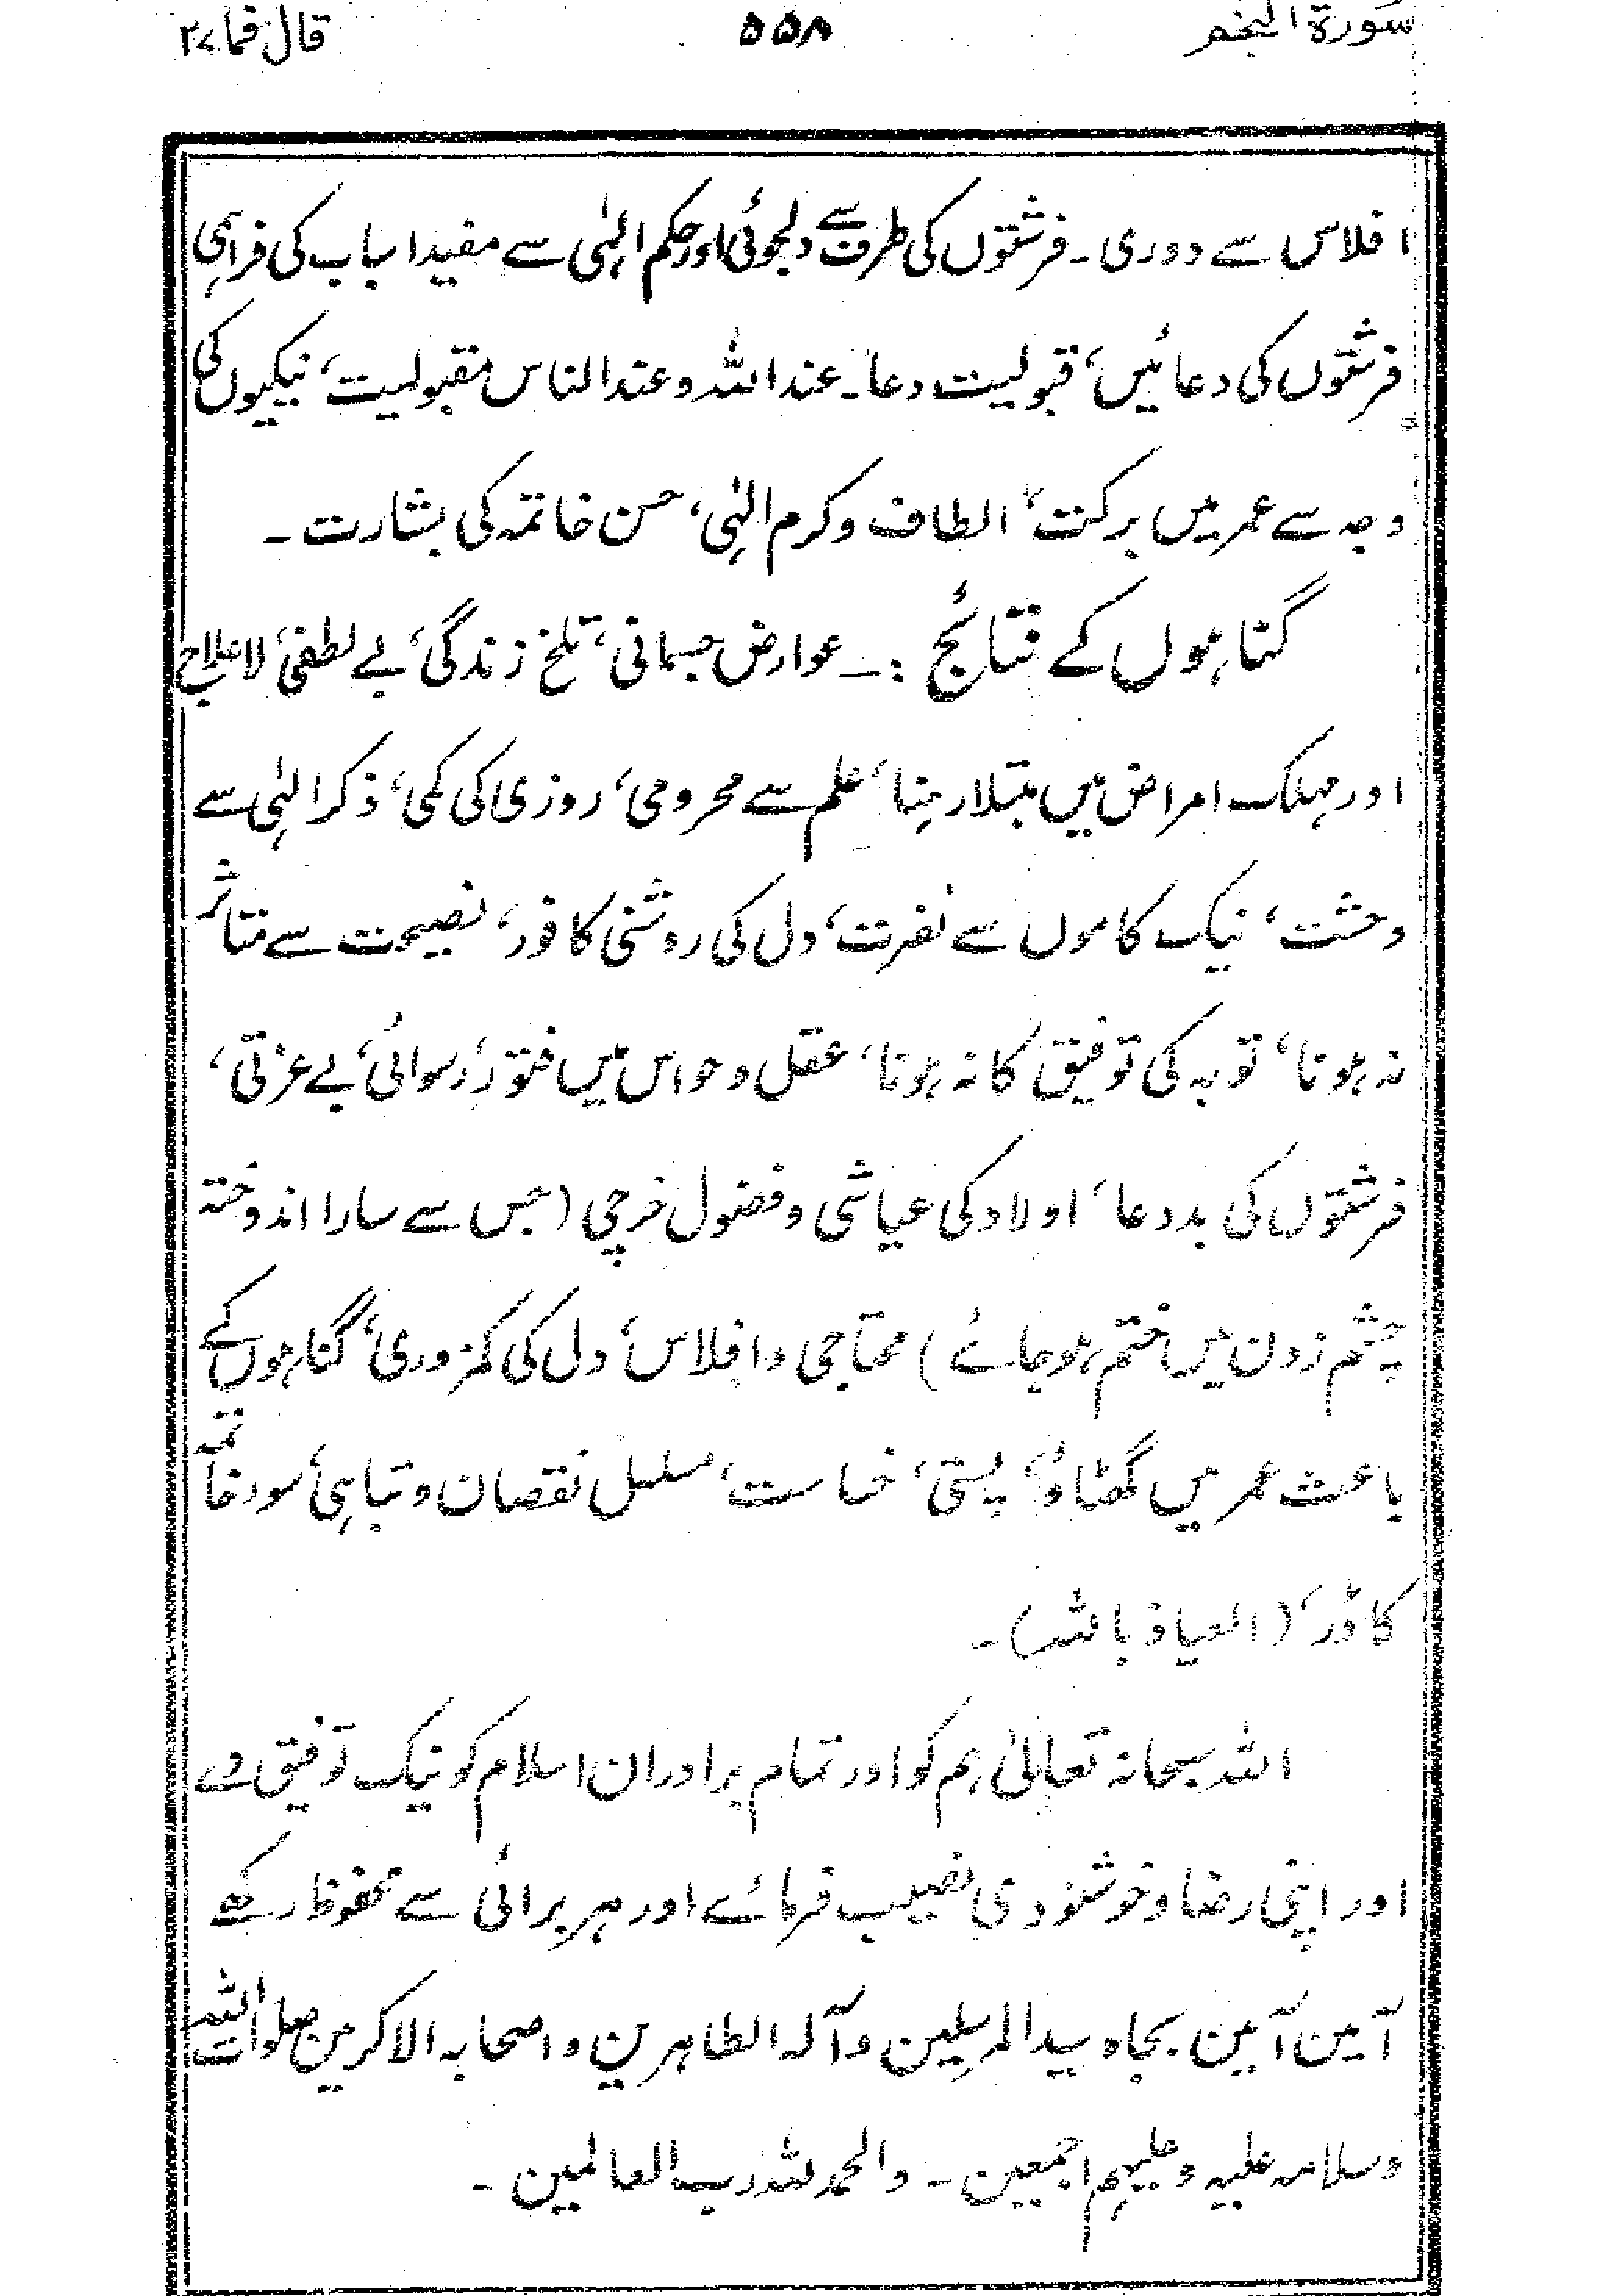 سورۃ النجم ۵۵۸ قال فما ۲۷
افلاس سے دوری۔ فرشتوں کی طرف سے دلجوئی اور حکم الہٰی سے مفید اسباب کی فراہمی
فرشتوں کی دعائیں، قبولیت دعا۔ عند اللہ و عند الناس مقبولیت، نیکیوں کی
وجہ سے عمر میں برکت، الطاف و کرم الہٰی، حسن خاتمہ کی بشارت۔
گناہوں کے نتائج :۔ عوارض جسمانی، تلخ زندگی، بے لطفی، لاعلاج
اور مہلک امراض میں مبتلا رہنا، علم سے محرومی، روزی کی کمی، ذکر الہٰی سے
وحشت، نیک کاموں سے نفرت، دل کی روشنی کافور، نصیحت سے متاثر
نہ ہونا، توبہ کی توفیق کا نہ ہونا، عقل و حواس میں فتور، رسوائی، بے عزتی،
فرشتوں کی بددعا، اولاد کی عیاشی و فضول خرچی (جس سے سارا اندوختہ
چشم زدن میں ختم ہوجائے) محتاجی و افلاس، دل کی کمزوری، گناہوں کے
باعث عمر میں گھٹاؤ، پستی، خساست، مسلسل نقصان و تباہی، سوء خاتمہ
کا ڈر، (العیاذ باللہ)۔
اللہ سبحانہ تعالیٰ ہم کو اور تمام برادران اسلام کو نیک توفیق دے
اور اپنی رضا و خوشنودی نصیب فرمائے اور ہر برائی سے محفوظ رکھے
آمین آمین بجاہ سید المرسلین وآلہ الطاہرین و اصحابہ الاکرمین صلوات اللہ
وسلامہ علیہ وعلیہم اجمعین۔ والحمد للہ رب العالمین۔